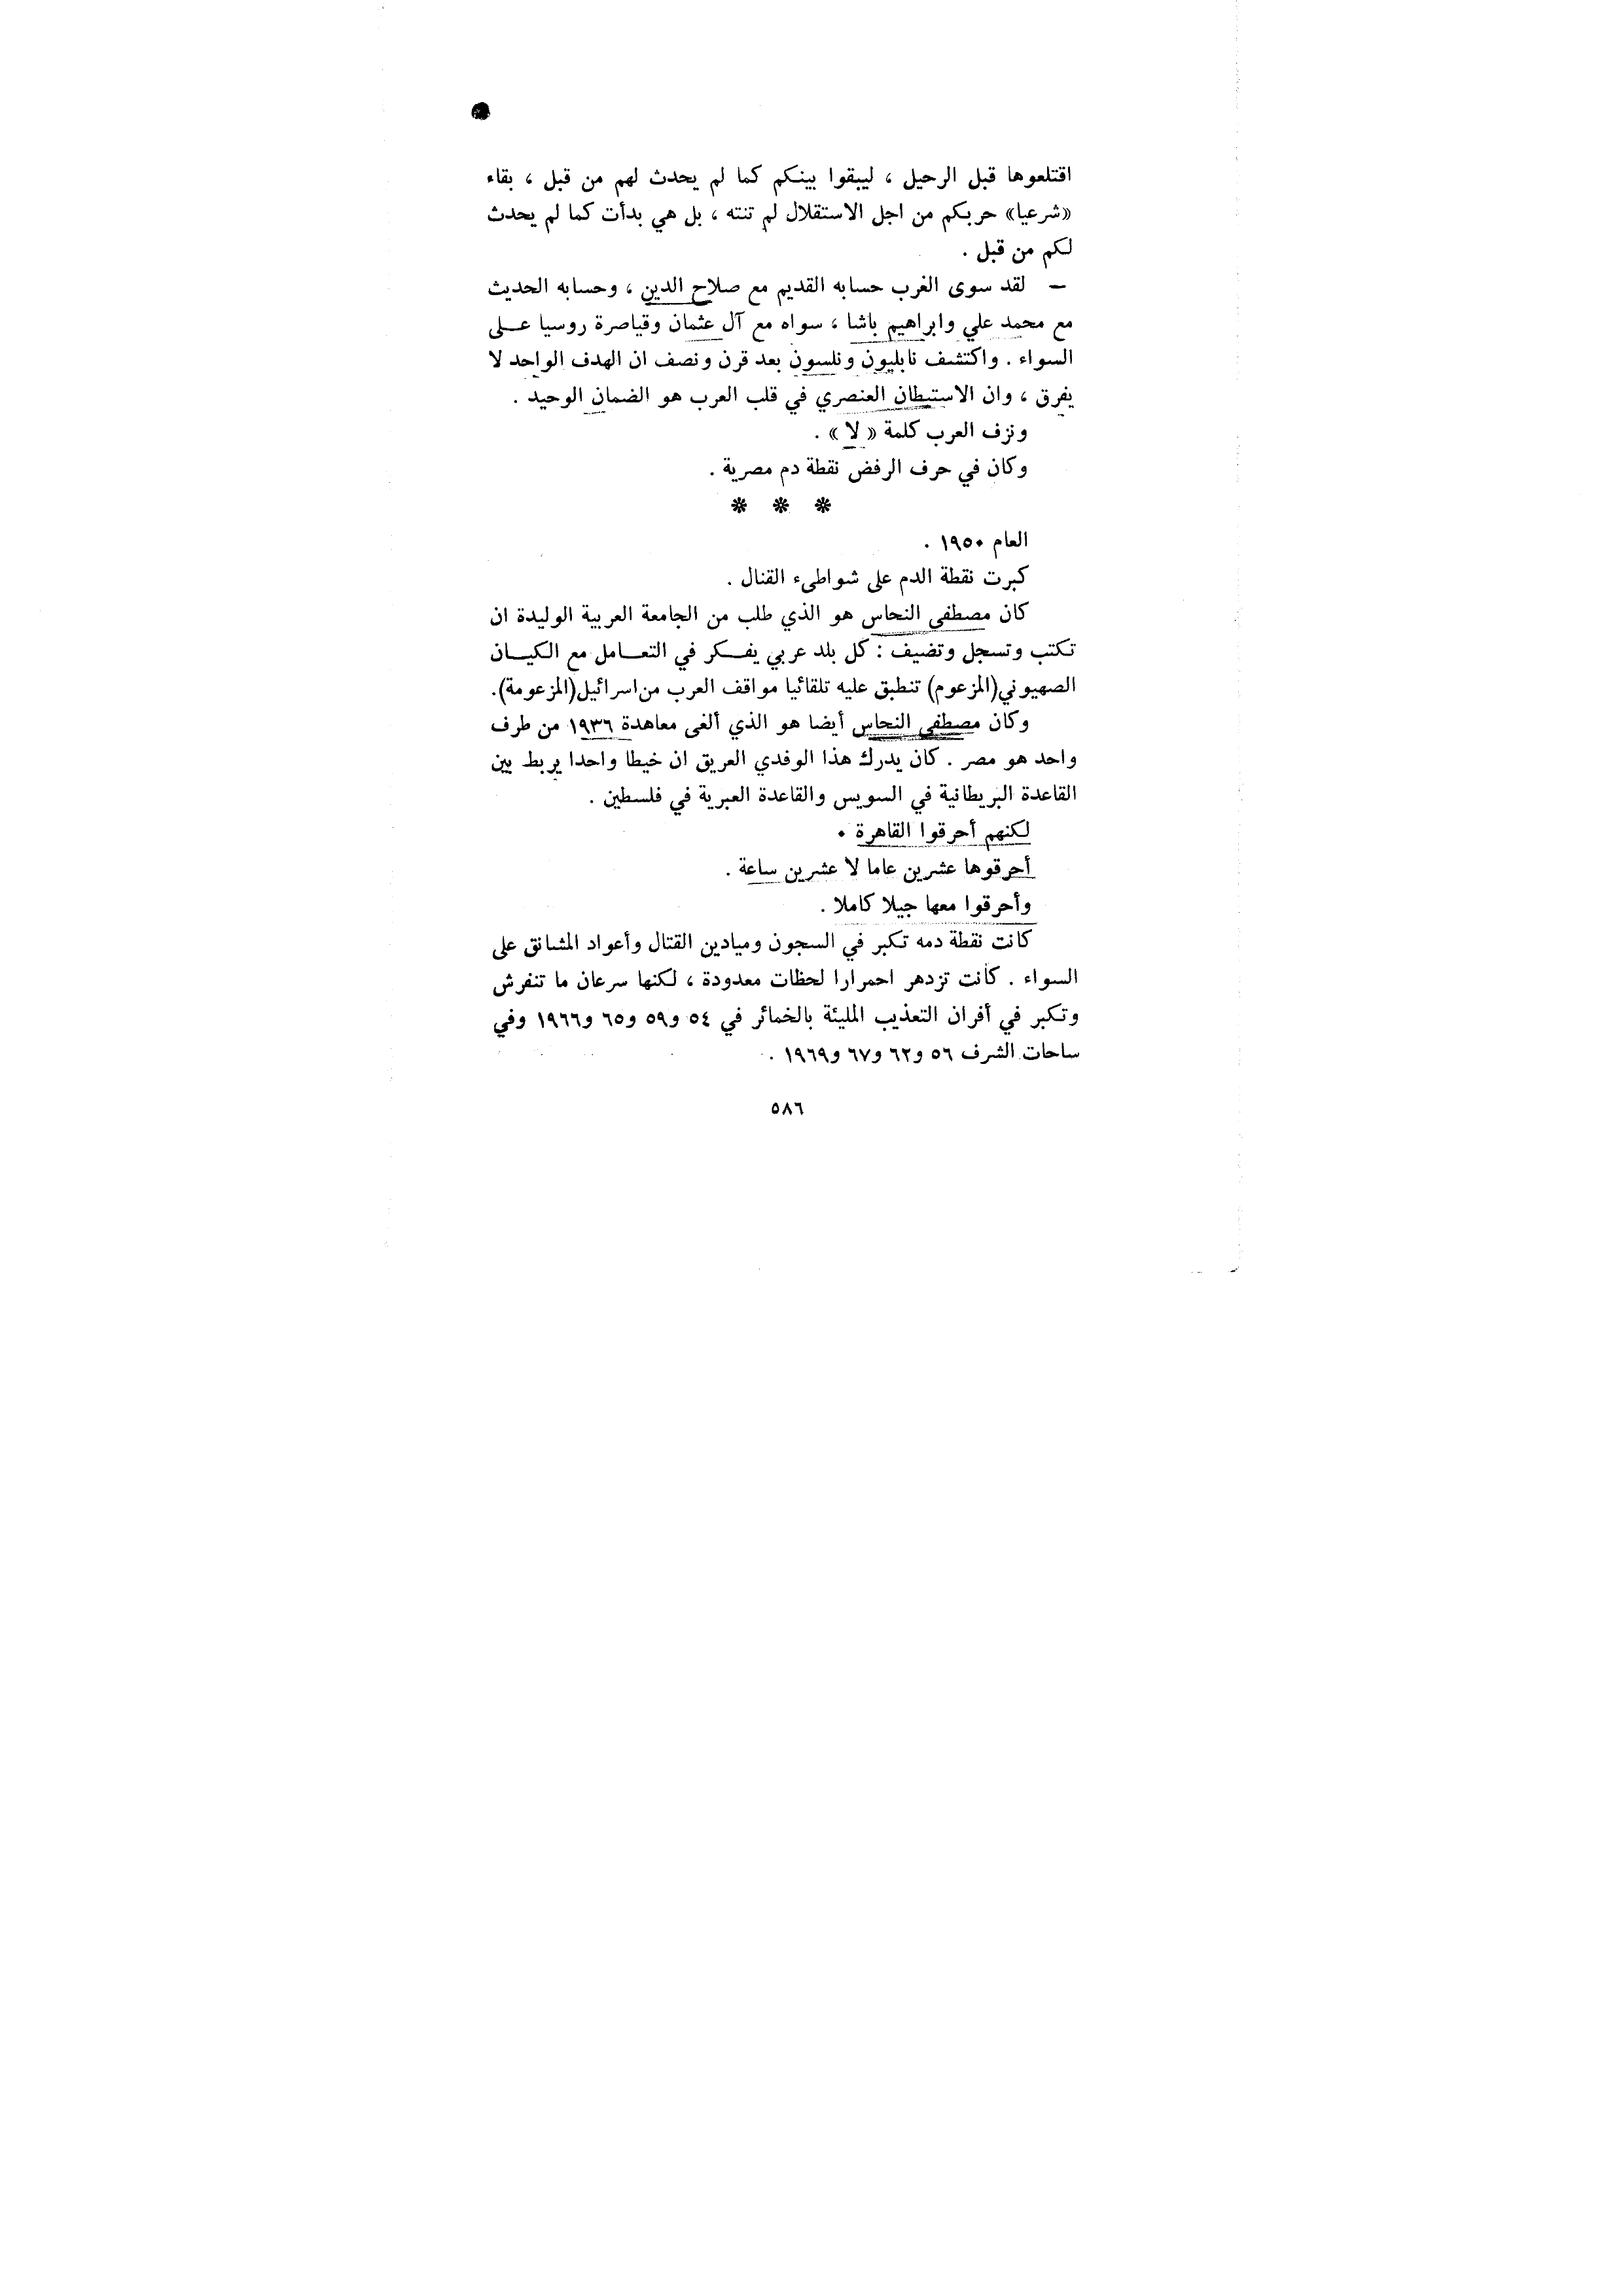 اقتلعوها قبل الرحيل ، ليبقوا بينكم كما لم يحدث لهم من قبل ، بقاء
«شرعيا» حربكم من اجل الاستقلال لم تنته ، بل هي بدأت كما لم يحدث
لكم من قبل .
— لقد سوى الغرب حسابه القديم مع صلاح الدين ، وحسابه الحديث
مع محمد علي وابراهيم باشا ، سواه مع آل عثمان وقياصرة روسيا على
السواء . واكتشف نابليون ونلسون بعد قرن ونصف ان الهدف الواحد لا
يفرق ، وان الاستيطان العنصري في قلب العرب هو الضمان الوحيد .
ونزف العرب كلمة « لا » .
وكان في حرف الرفض نقطة دم مصرية .
* * *
العام ١٩٥٠ .
كبرت نقطة الدم على شواطىء القنال .
كان مصطفى النحاس هو الذي طلب من الجامعة العربية الوليدة ان
تكتب وتسجل وتضيف : كل بلد عربي يفكر في التعامل مع الكيان
الصهيوني(المزعوم) تنطبق عليه تلقائيا مواقف العرب من اسرائيل(المزعومة).
وكان مصطفى النحاس أيضا هو الذي ألغى معاهدة ١٩٣٦ من طرف
واحد هو مصر . كان يدرك هذا الوفدي العريق ان خيطا واحدا يربط بين
القاعدة البريطانية في السويس والقاعدة العبرية في فلسطين .
لكنهم أحرقوا القاهرة .
أحرقوها عشرين عاما لا عشرين ساعة .
وأحرقوا معها جيلا كاملا .
كانت نقطة دمه تكبر في السجون وميادين القتال وأعواد المشانق على
السواء . كانت تزدهر احمرارا لحظات معدودة ، لكنها سرعان ما تنفرش
وتكبر في أفران التعذيب المليئة بالخمائر في ٥٤ و٥٩ و٦٥ و١٩٦٦ وفي
ساحات الشرف ٥٦ و٦٢ و٦٧ و١٩٦٩ .
٥٨٦